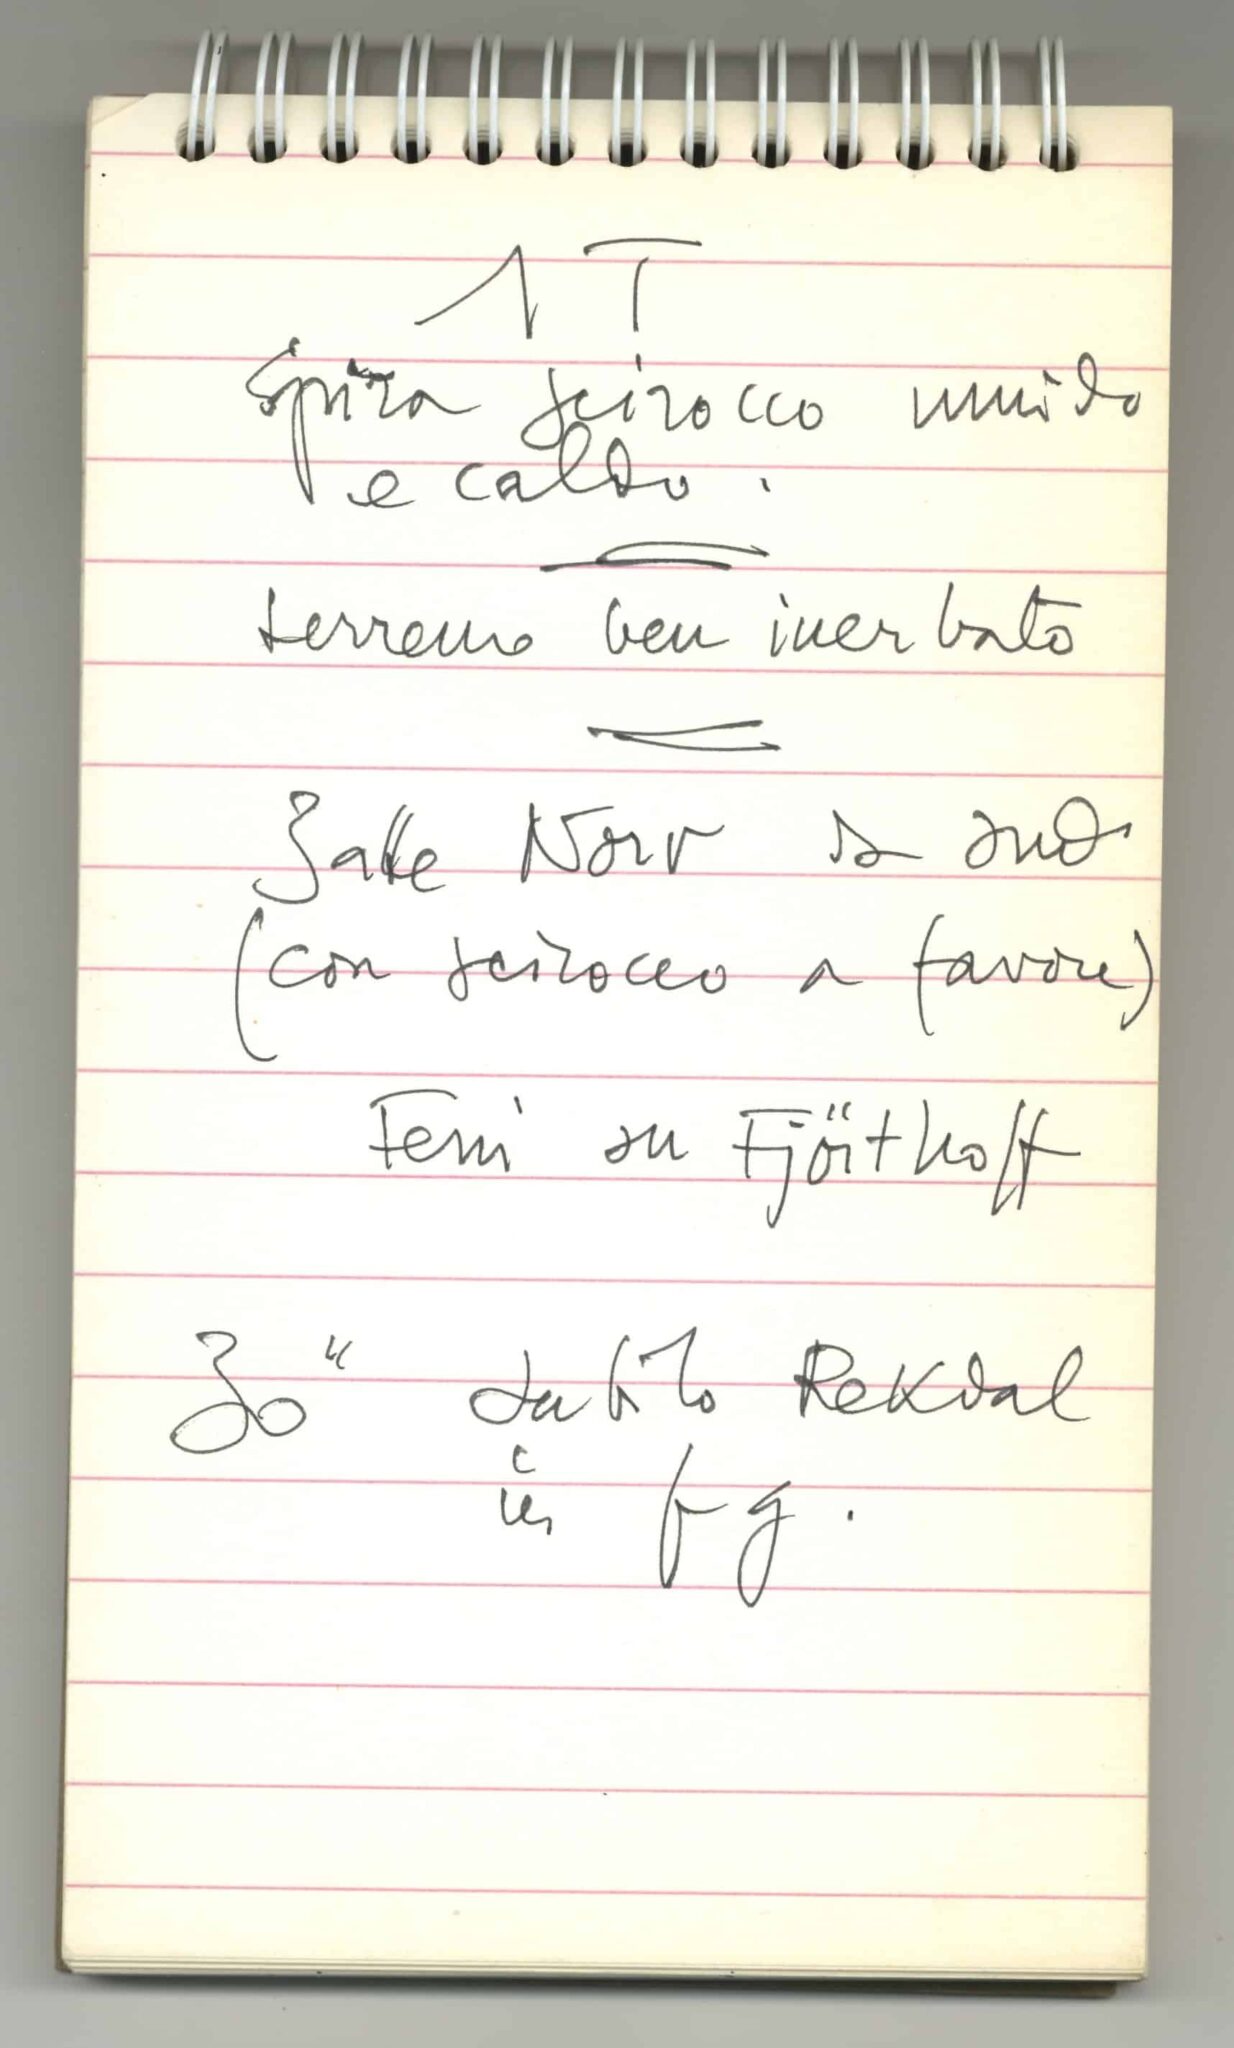 1 T
Spira scirocco umido
e caldo.
terreno ben inerbato
Batte Norv da sud
(con scirocco a favore)
Ferri su Fjörthoff
30" subito Rekdal
in fg.